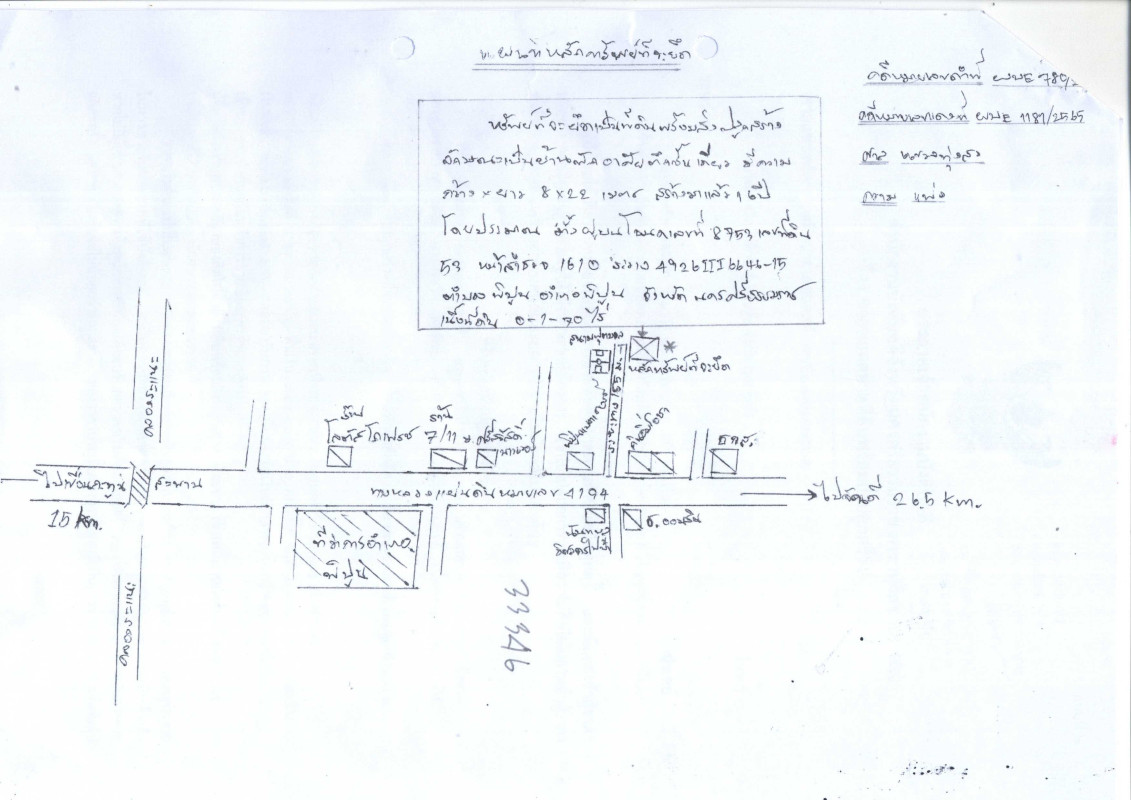 แผนที่หลักทรัพย์ที่จะยึด
คดีหมายเลขดำที่ ผบE 789/2
คดีหมายเลขแดงที่ ผบE 1181/2565
ศาล แขวงทุ่งสง
ความ แพ่ง
ทรัพย์ที่จะยึดเป็นที่ดินพร้อมสิ่งปลูกสร้าง
ลักษณะเป็นบ้านพักอาศัยตึกชั้นเดียว มีความ
กว้าง x ยาว 8 x 22 เมตร สร้างมาแล้ว ปี
โดยประมาณ ตั้งอยู่บนโฉนดเลขที่ 8753 เลขที่ดิน
53 หน้าสำรวจ 1610 ระวาง 4926III6646-15
ตำบล พิปูน อำเภอ พิปูน จังหวัด นครศรีธรรมราช
เนื้อที่ดิน 0-1-70 ไร่
หลักทรัพย์ที่จะยึด
ระยะทาง 165 ม.
คลองระแนะ
ร้าน
โลตัสโกเฟรช
ร้าน
7/11
ธกส.
ไปเขื่อนกะทูน
15 km.
สะพาน
ทางหลวงแผ่นดินหมายเลข 4194
ไปจันดี 26.5 km.
ที่ว่าการอำเภอ
พิปูน
ธ.ออมสิน
คลองระแนะ
33346